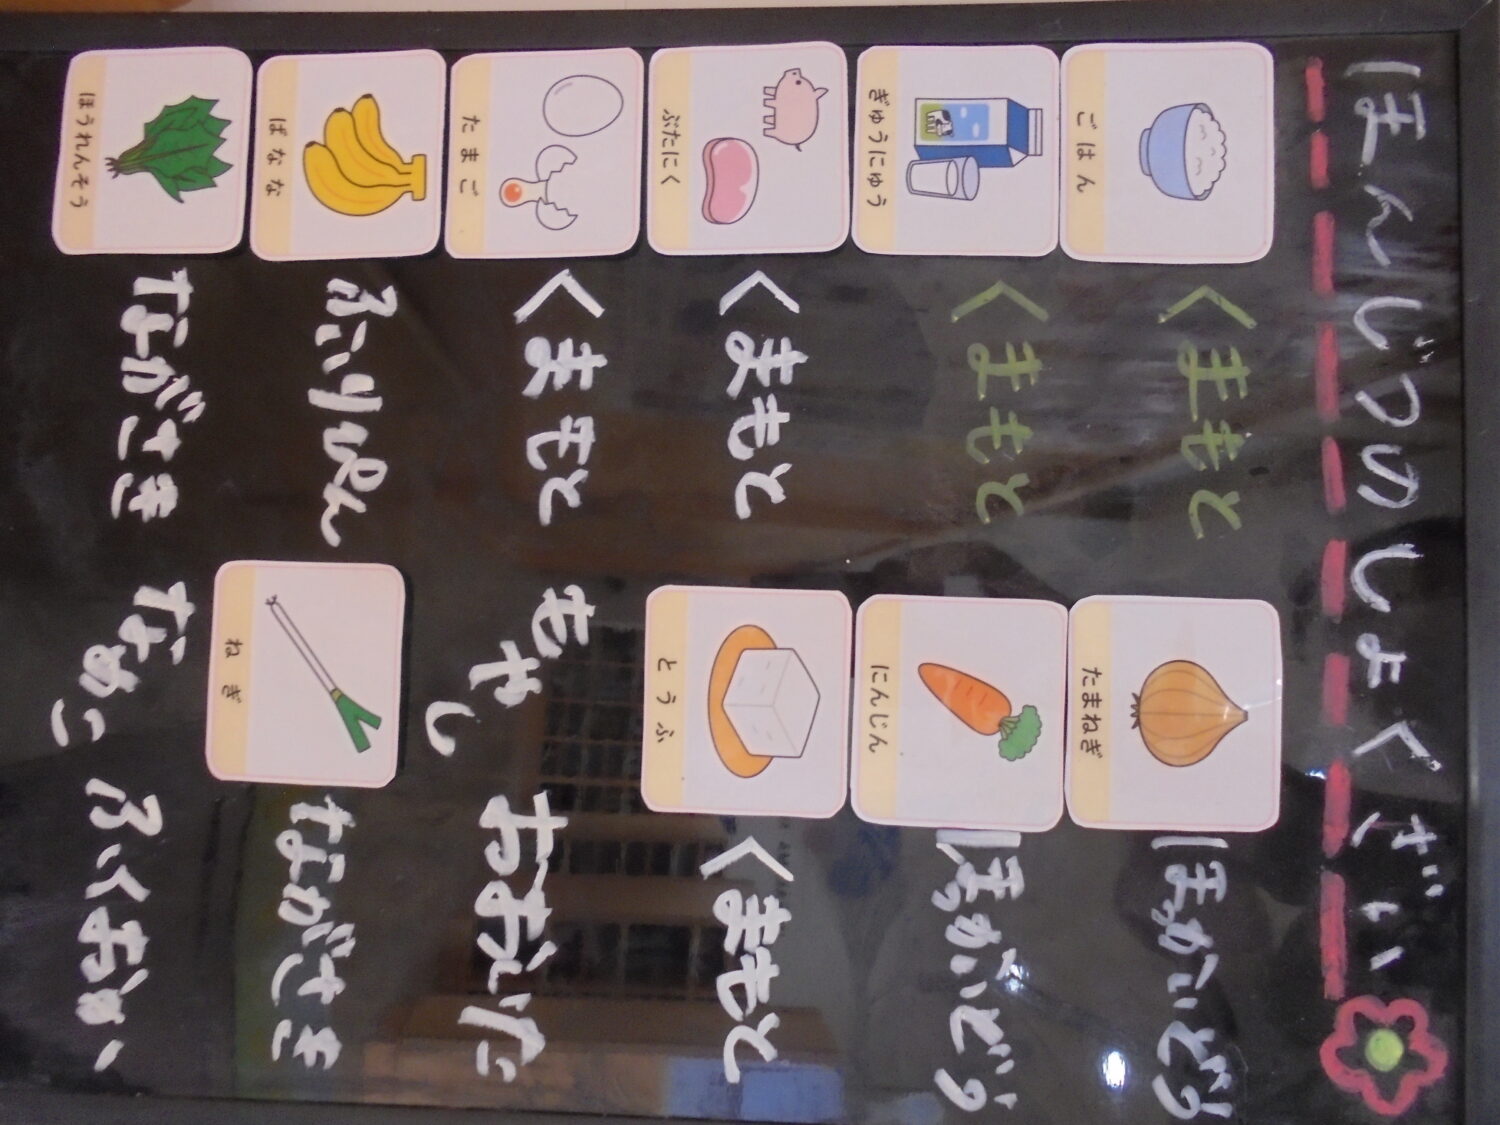 ほんじつのしょくざい
ごはん くまもと たまねぎ ほっかいどう
ぎゅうにゅう くまもと にんじん ほっかいどう
ぶたにく くまもと とうふ くまもと
たまご くまもと もやし おおいた
ばなな ふぃりぴん ねぎ ながさき
ほうれんそう ながさき なめこ ふくおか